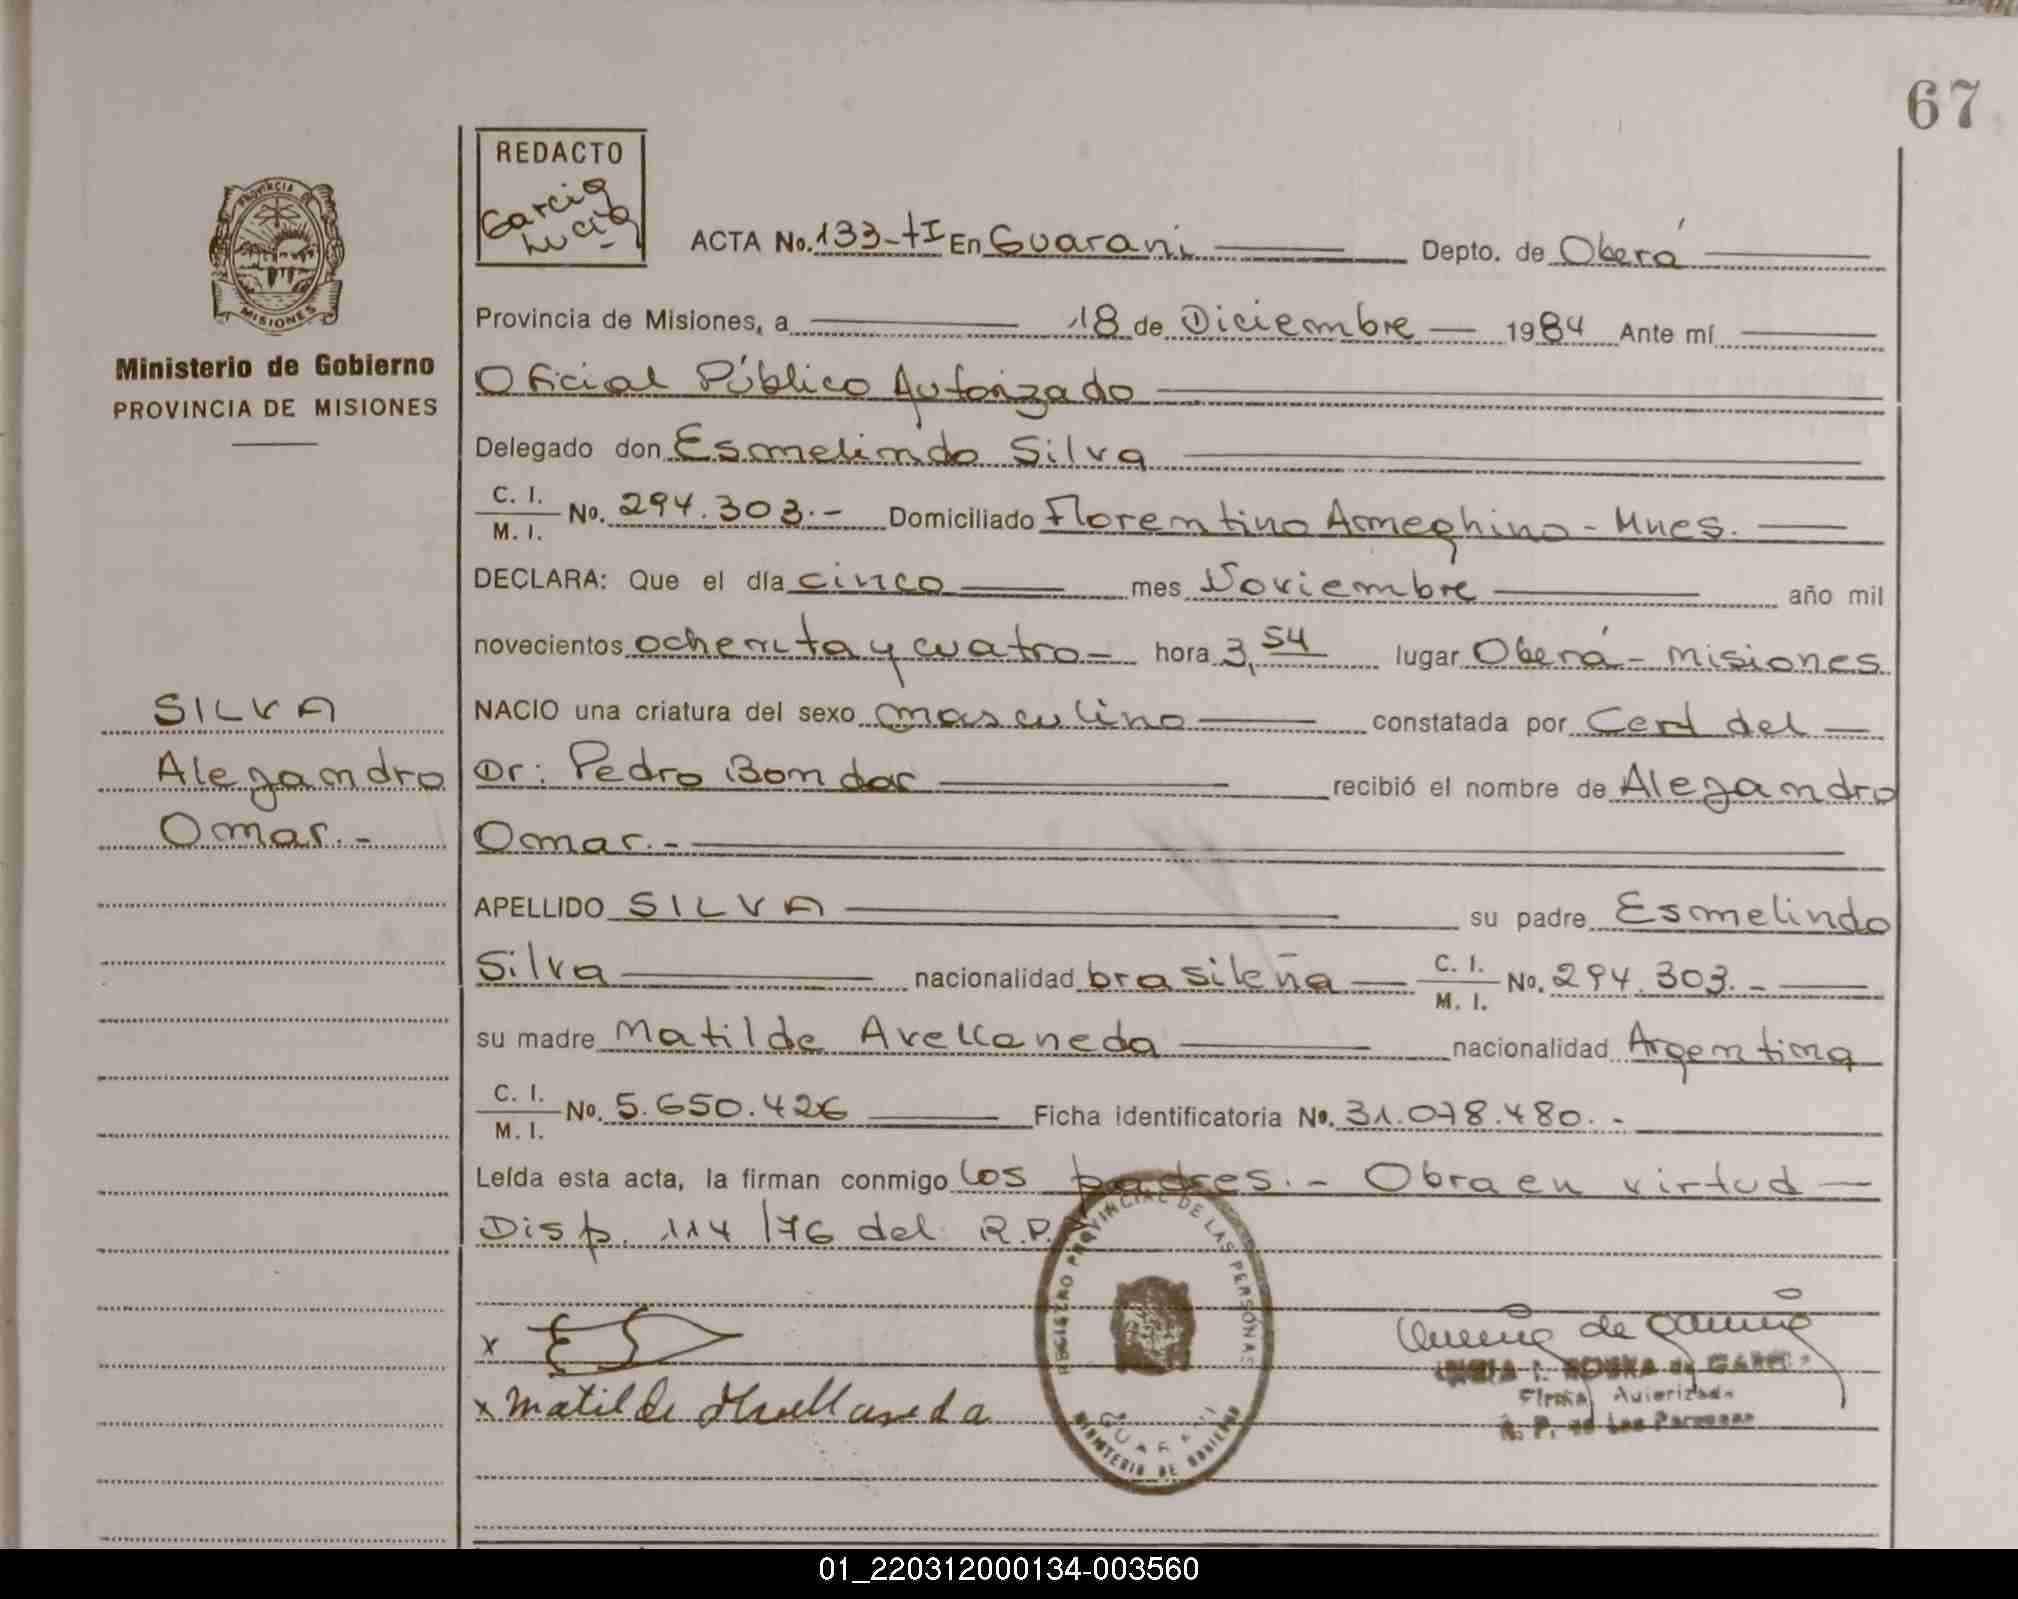 67
REDACTO
Garcia
Lucia
PROVINCIA DE
MISIONES
ACTA No. 133-tI En Guarani Depto. de Oberá
Provincia de Misiones, a 18 de Diciembre 1984 Ante mí
Ministerio de Gobierno
PROVINCIA DE MISIONES
Oficial Público Autorizado
Delegado don Esmelindo Silva
C. I. / M. I. No. 294.303.- Domiciliado Florentino Ameghino - Mnes.
DECLARA: Que el día cinco mes Noviembre año mil
novecientos ochenta y cuatro - hora 3,54 lugar Oberá - Misiones
SILVA
Alejandro
Omar.-
NACIO una criatura del sexo masculino constatada por Cert del
Dr: Pedro Bondar recibió el nombre de Alejandro
Omar.-
APELLIDO SILVA su padre Esmelindo
Silva nacionalidad brasileña C. I. / M. I. No. 294.303.-
su madre Matilde Avellaneda nacionalidad Argentina
C. I. / M. I. No. 5.650.426 Ficha identificatoria No. 31.078.480.-
Leída esta acta, la firman conmigo los padres.- Obra en virtud
Disp. 114/76 del R.P.
REGISTRO PROVINCIAL DE LAS PERSONAS
GUARANI
MINISTERIO DE GOBIERNO
x ES
x Matilde Avellaneda
de GARCIA
Firma Autorizada
R. P. de Las Personas
01_220312000134-003560